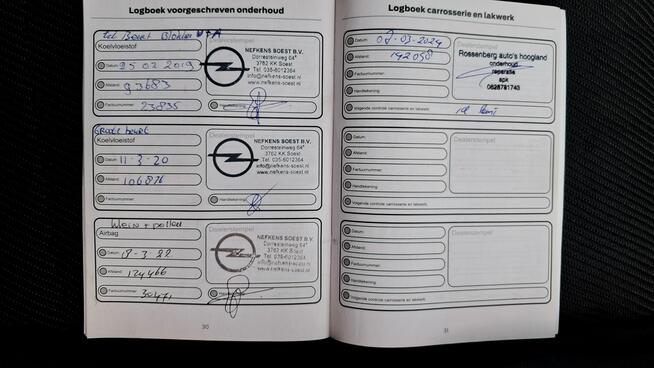 Logboek voorgeschreven onderhoud
Blokken
Koelvloeistof
Datum: 25 02 2019
Afstand: 93683
Factuurnummer: 23835
Dealerstempel
NEFKENS SOEST B.V.
Dorresteinweg 64ª
3762 KK Soest
Tel. 035-6012364
info@nefkens-soest.nl
www.nefkens-soest.nl
Handtekening:
Groote beurt
Koelvloeistof
Datum: 11-3-20
Afstand: 106876
Factuurnummer:
Dealerstempel
NEFKENS SOEST B.V.
Dorresteinweg 64ª
3762 KK Soest
Tel. 035-6012364
info@nefkens-soest.nl
www.nefkens-soest.nl
Handtekening:
Klein + pollen
Airbag
Datum: 8-3-22
Afstand: 124466
Factuurnummer: 30471
Dealerstempel
NEFKENS SOEST B.V.
Dorresteinweg 64ª
3762 KK Soest
Tel. 035-6012364
info@nefkens-soest.nl
www.nefkens-soest.nl
30
Logboek carrosserie en lakwerk
Datum: 07-03-2024
Afstand: 142058
Factuurnummer:
Handtekening:
Volgende controle carrosserie en lakwerk:
Dealerstempel
Rossenberg auto's hoogland
onderhoud
reparatie
apk
0628781743
Datum:
Afstand:
Factuurnummer:
Handtekening:
Volgende controle carrosserie en lakwerk:
Dealerstempel
Datum:
Afstand:
Factuurnummer:
Handtekening:
Volgende controle carrosserie en lakwerk:
Dealerstempel
31